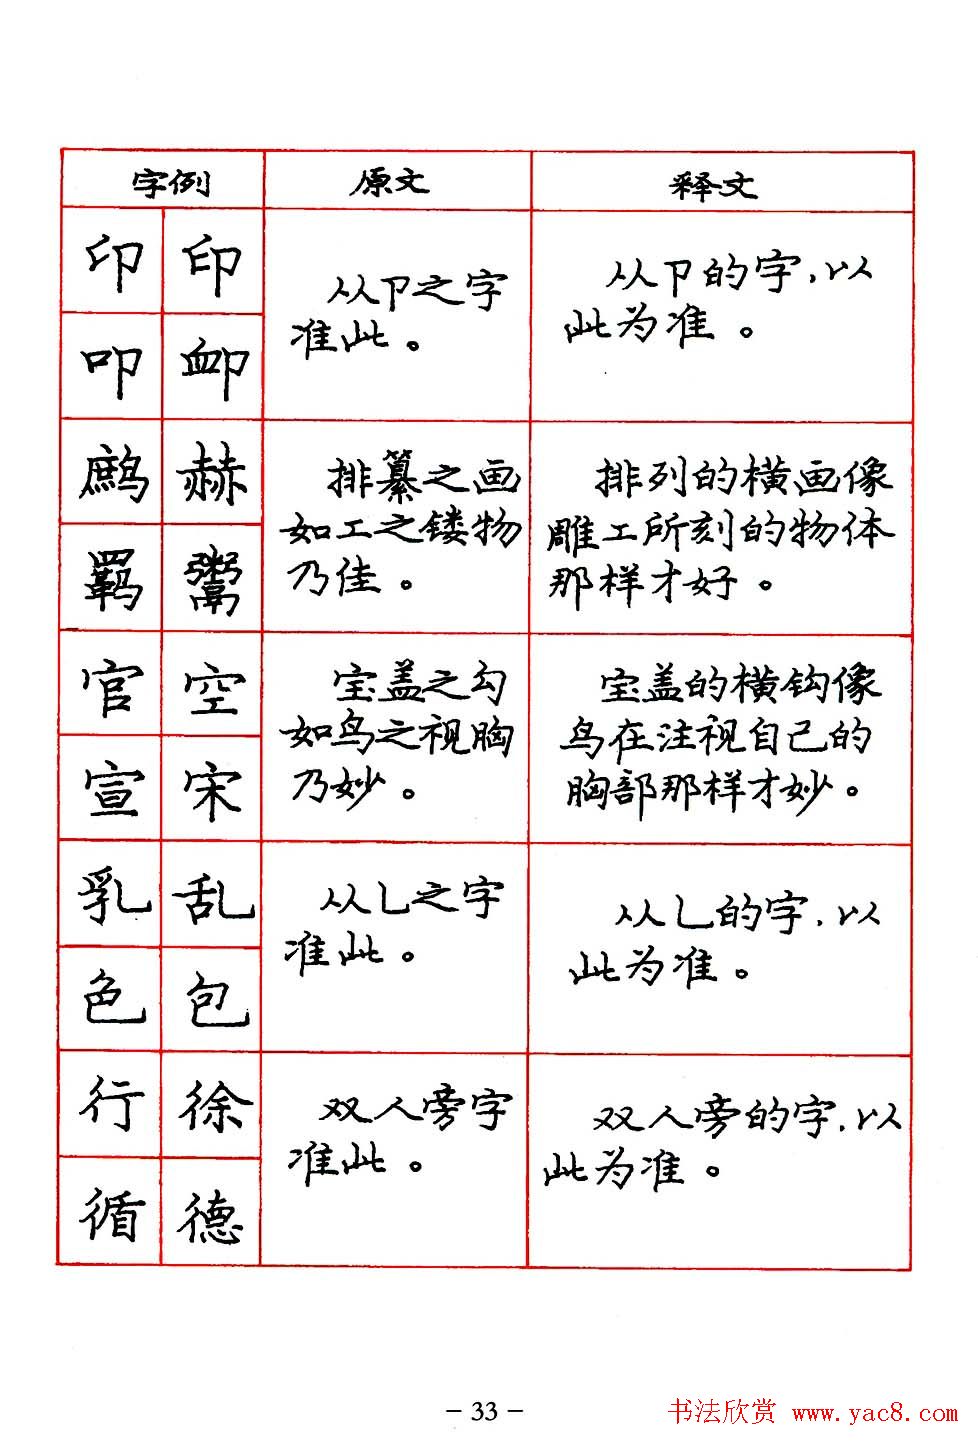 字例 原文 释文
印 印
叩 卹
从卩之字
准此。
从卩的字,以
此为准。
鹧 赫
羁 鬻
排纂之画
如工之镂物
乃佳。
排列的横画像
雕工所刻的物体
那样才好。
官 空
宣 宋
宝盖之勾
如鸟之视胸
乃妙。
宝盖的横钩像
鸟在注视自己的
胸部那样才妙。
乳 乱
色 包
从乚之字
准此。
从乚的字,以
此为准。
行 徐
循 德
双人旁字
准此。
双人旁的字,以
此为准。
- 33 -
书法欣赏 www.yac8.com